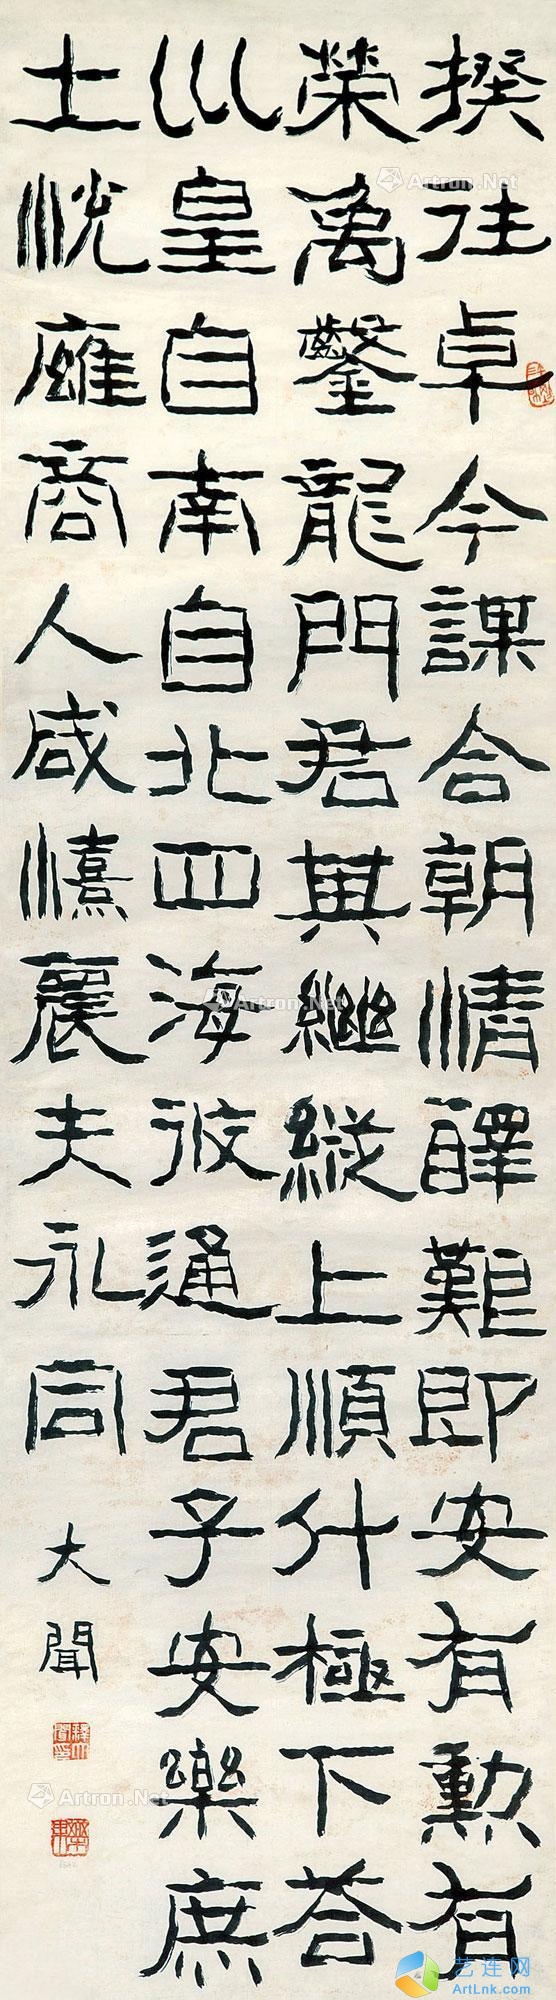 揆往卓今謀合朝情醳艱即安有勳有
榮禹鑿龍門君其繼縱上順斗極下荅
巛皇自南自北四海攸通君子安樂庶
士悅雍商人咸憘農夫永同
大聞
Artron.Net
Artron.Net
Artron.Net
Artron.Net
艺连网
ArtLnk.com